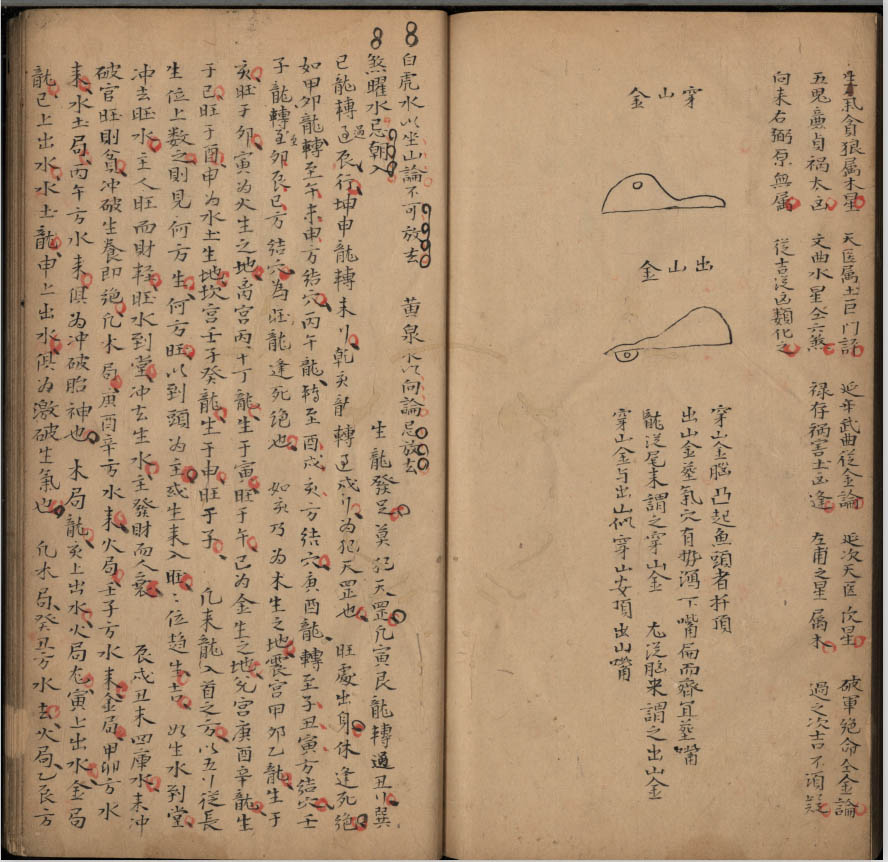 生氣貪狼屬木星 天医屬土巨门評 延年武曲從金論 破軍絕命仝金論
五鬼亷貞禍太凶 文曲水星仝六煞 禄存禍害土凶逢 左甫之星屬木 過之次吉不須疑
向来右弼原無屬 從吉從凶類化之 延次天医次星
穿山金
出山金
穿山金腦凸起鱼頭者扦頂
出山金塟氣穴有势瀉下嘴偏而齊宜塟嘴
龍從尾来謂之穿山金 尤從腦来謂之出山金
穿山金与出山似穿山安項出山嘴
白虎水以坐山論不可放去 黄泉水以向論忌放去
煞曜水忌朝入 生龍發足莫犯天罡凢寅艮龍轉過丑
巳龍轉過辰行坤申龍轉未 乾亥龍轉過戍 為犯天罡也 旺處出身休逢死絕
如甲卯龍轉至午未申方结穴丙午龍轉至酉戍亥方结穴庚酉龍轉至子丑寅方结穴壬
子龍轉至卯辰巳方结穴為旺龍逢死絕也 如亥乃為木生之地震宫甲卯乙龍生于
亥旺于卯寅為火生之地离宫丙午丁龍生于寅旺于午巳為金生之地兌宫庚酉辛龍生
于巳旺于酉申為水土生地坎宫壬子癸龍生于申旺于子 凢来龍入首之方以五行從長
生位上数之則見何方生何方旺以到頭為主或生来入旺二位趋生吉 如生水到堂
冲去旺水主人旺而財輕旺水到堂冲去生水主發財而人衰 辰戍丑未四庫水来冲
破官旺則貧冲破生養即絕凢木局庚酉辛方水来火局壬子方水来金局甲卯方水
来水土局丙午方水来俱为冲破胎神也 木局龍亥上出水火局龙寅上出水金局
龍巳上出水水土龍申上出水俱为激破生氣也 凢木局癸丑方水去火局乙辰方